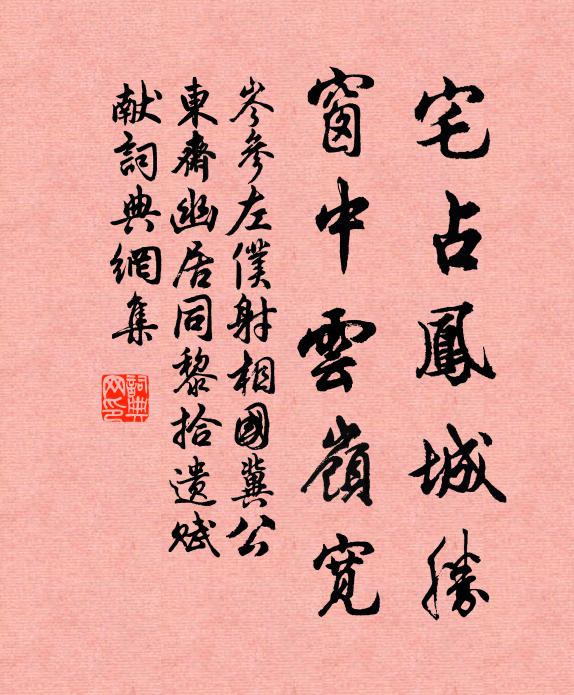 宅占鳳城勝
窗中雲嶺寬
岑參左僕射相國冀公
東齋幽居同黎拾遺賦
献詞典網集
詞典網印